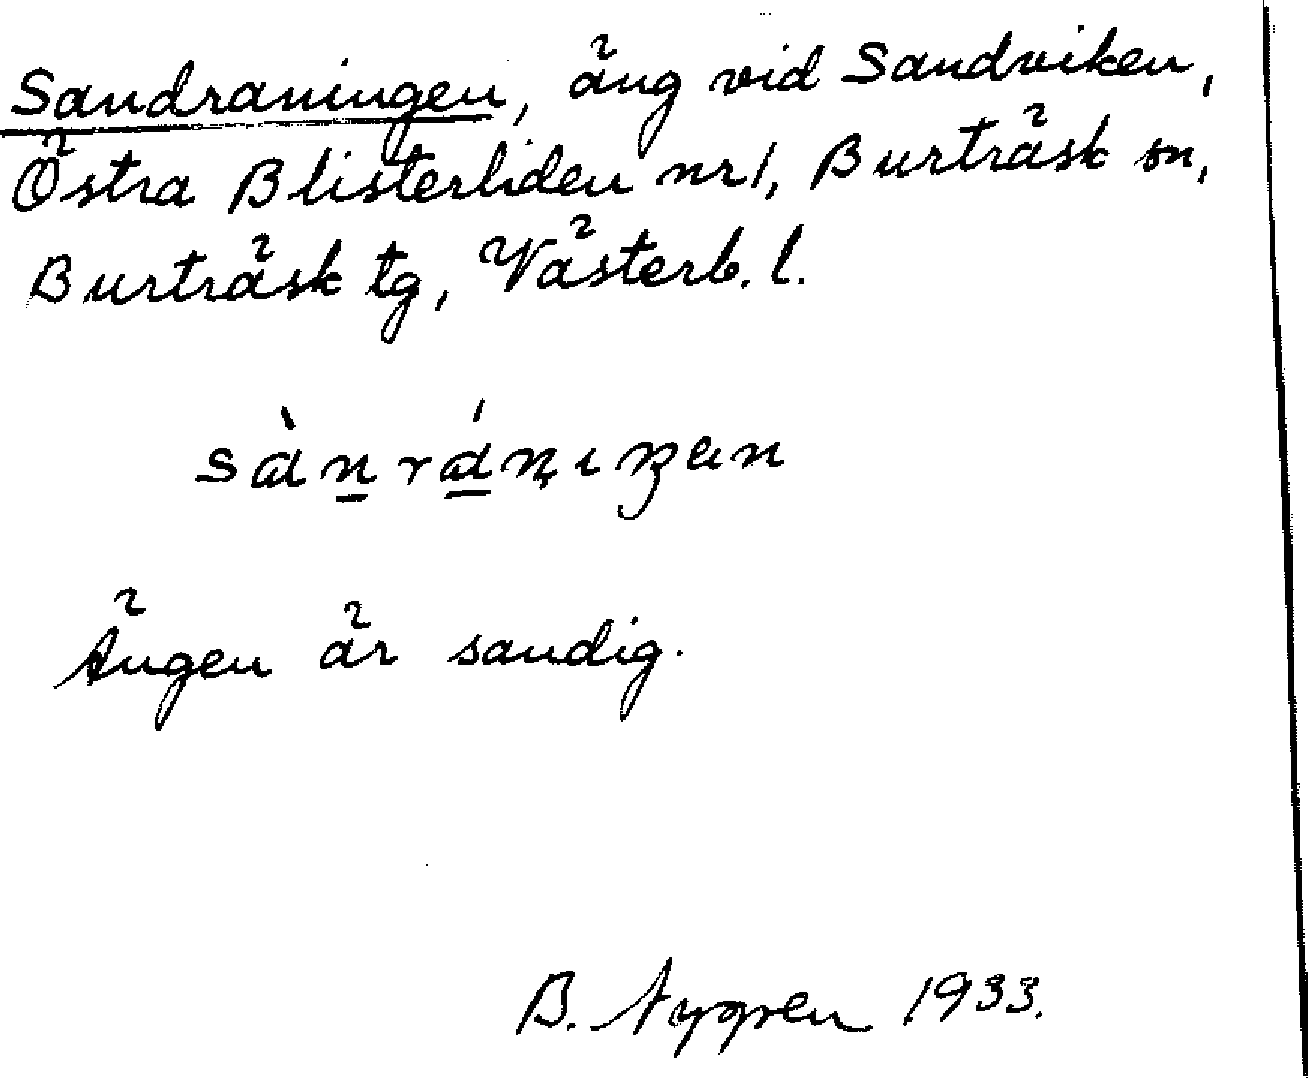 Sandraningen, äng vid Sandviken,
Östra Blisterliden nr 1, Burträsk sn,
Burträsk tg, Västerb. l.
Ängen är sandig.
B. Nygren 1933.